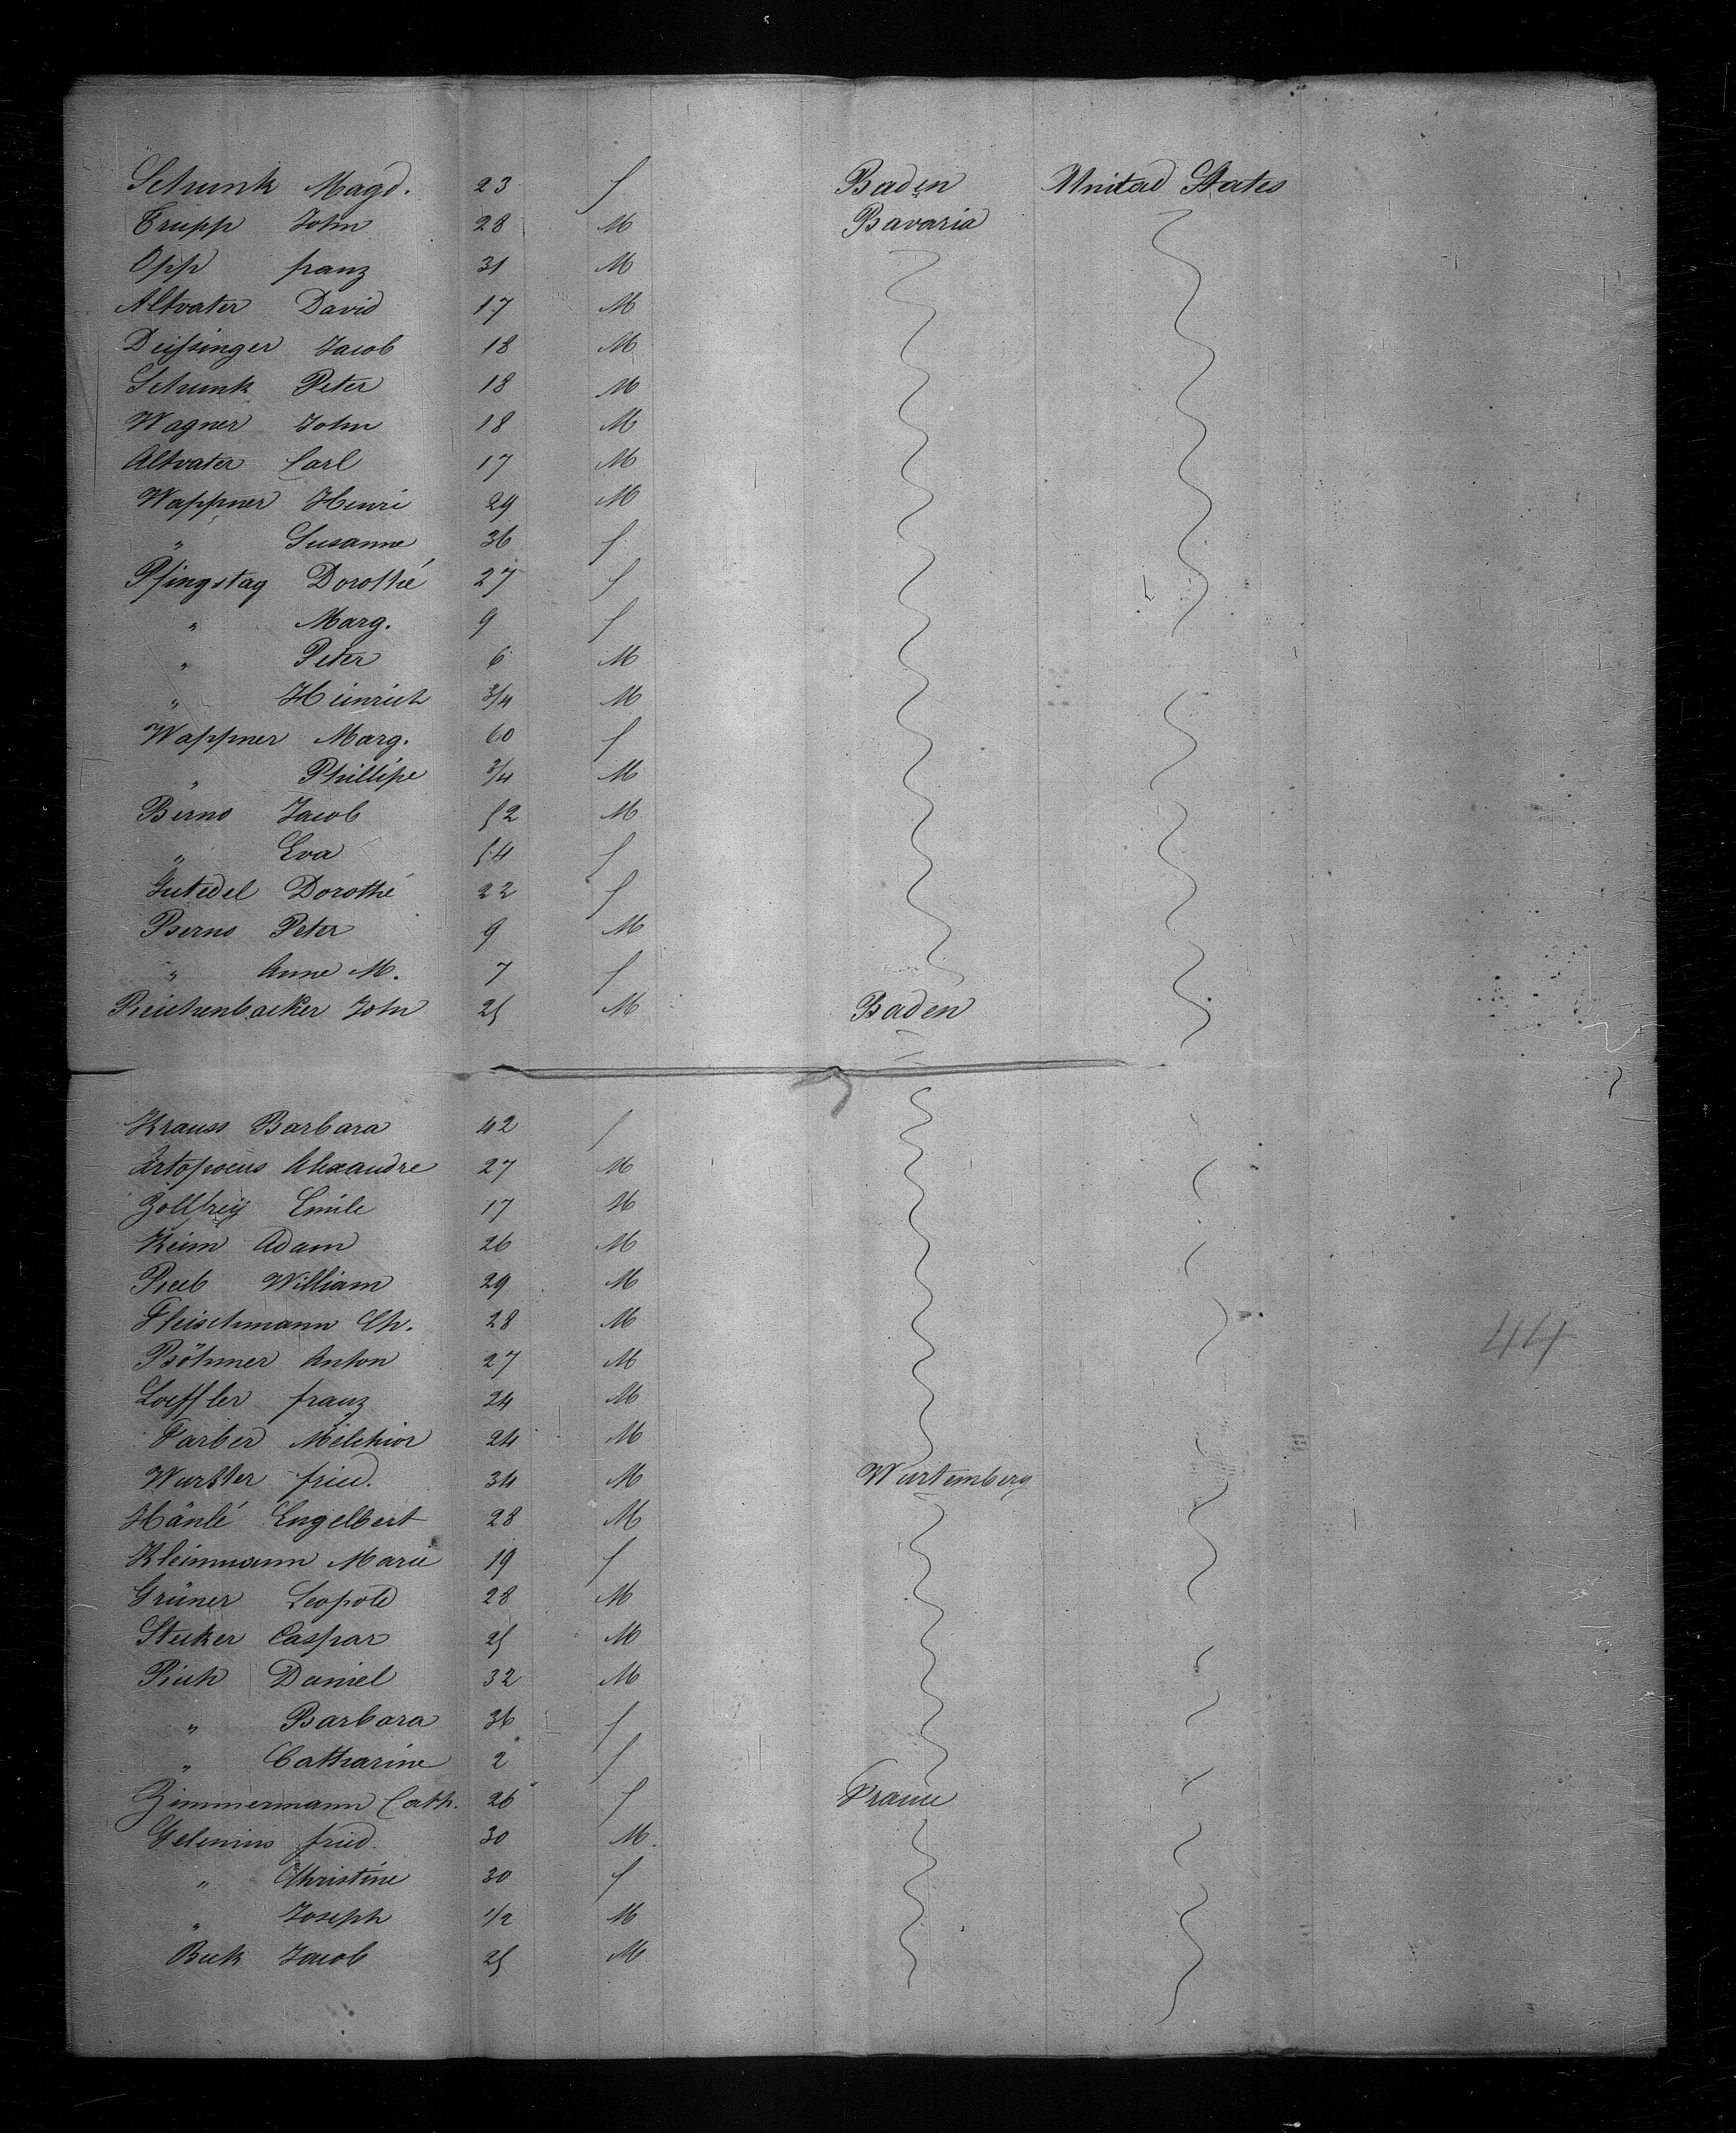 Schunk Magd. 23 f Baden United States
Trupp John 28 M Bavaria
Opp franz 31 M
Altvater David 17 M
Deissinger Jacob 18 M
Schunk Peter 18 M
Wagner John 18 M
Altvater Carl 17 M
Wappner Henri 29 M
" Susanne 36 f
Pfingstag Dorothé 27 f
" Marg. 9 f
" Peter 6 M
" Heinrich 3/4 M
Wappner Marg. 60 f
" Phillipe 3/4 M
Berno Jacob 52 M
" Eva 54 f
Gutedel Dorothé 22 f
Berno Peter 9 M
" Anne M. 7 f
Reichenbacker John 25 M Baden
Krauss Barbara 42 f
Artopoeus Alexandre 27 M
Zollfrey Emile 17 M
Keim Adam 26 M
Rieb William 29 M
Fleischmann Ch. 28 M
Böhmer Anton 27 M
Loeffler franz 24 M
Farber Melchior 24 M
Wurster fried. 34 M Wurtemberg
Hänlé Engelbert 28 M
Kleinmann Marie 19 f
Grüner Leopold 28 M
Stecker Caspar 25 M
Rich Daniel 32 M
" Barbara 36 f
" Catharine 2 f
Zimmermann Cath. 26 f France
Gelenius fried. 30 M
" Christine 30 f
" Joseph 1/2 M
Beck Jacob 25 M
44